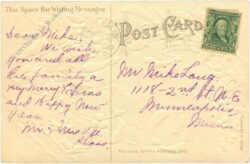 This Space For Writing Messages
POST CARD
Dear Mike:
We wish
you and all
the family a
Merry Xmas
and Happy New
Year
Mr. & Mrs.
Mr. Mike Lang
1118-2nd St. N.E.
Minneapolis
Minn